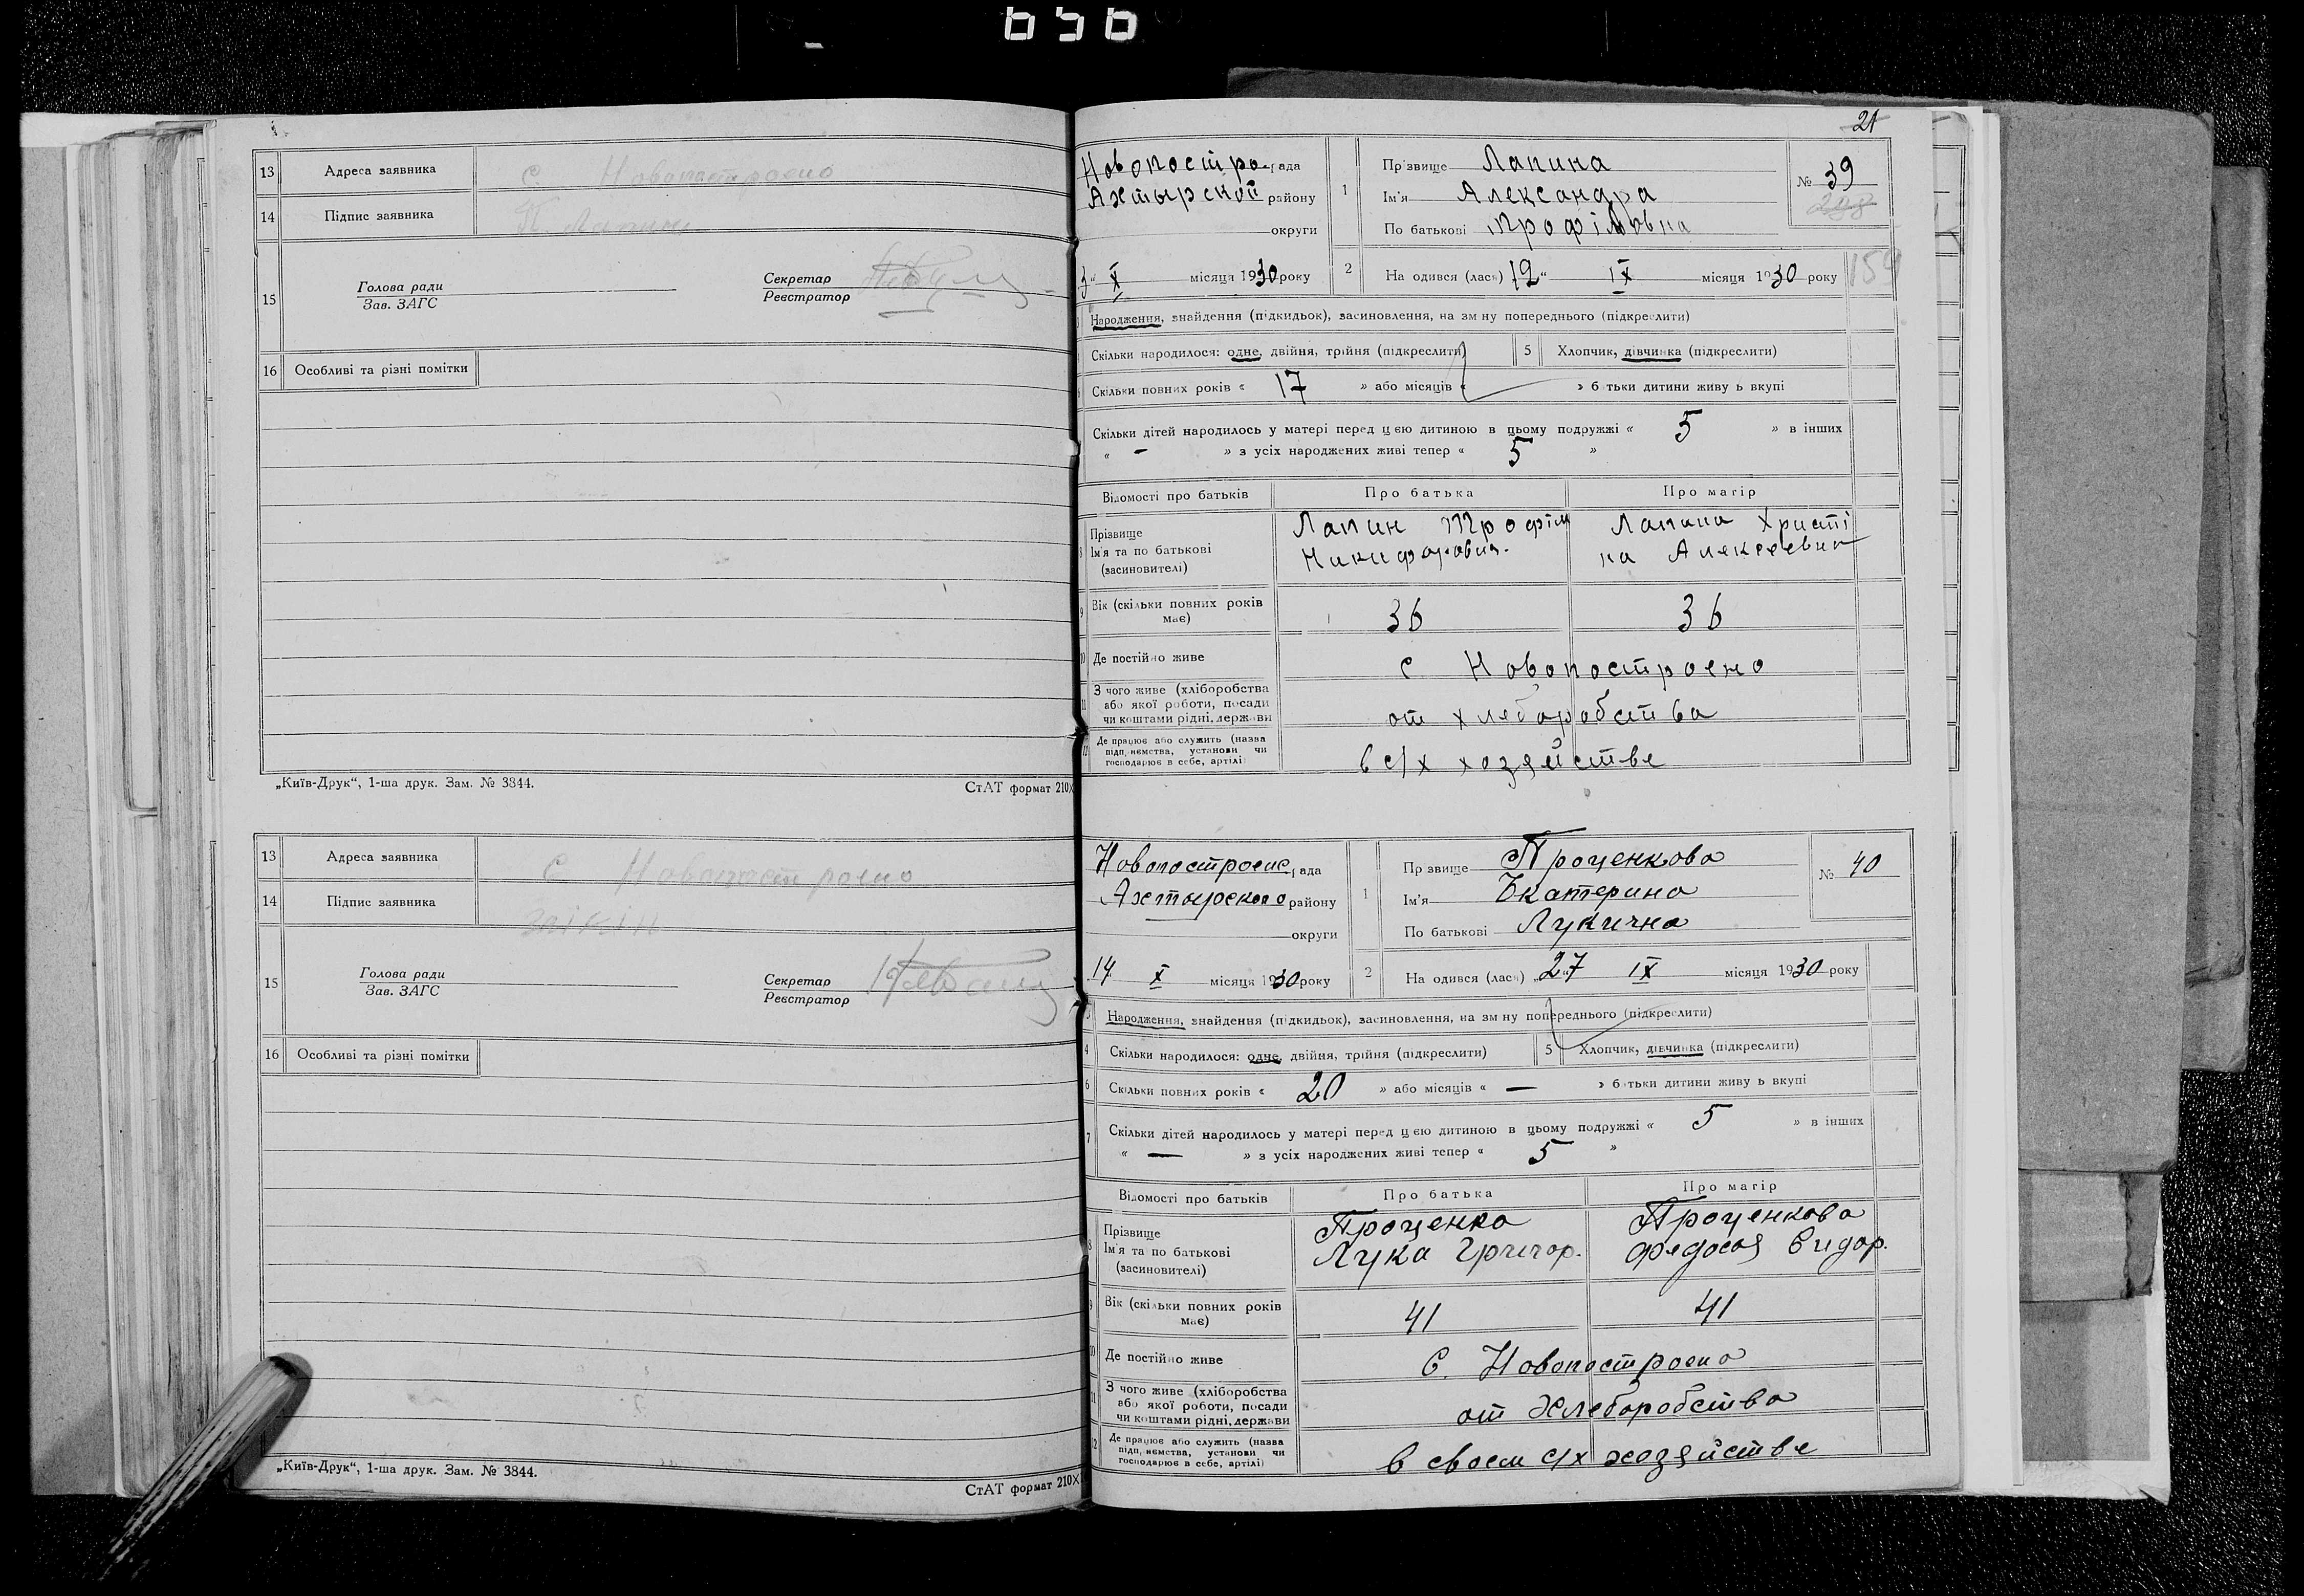 656
13 Адреса заявника с. Новопостроено
14 Підпис заявника П. Лапин
15 Голова ради
Зав. ЗАГС
Секретар
Реєстратор
16 Особливі та різні помітки
„Київ-Друк“, 1-ша друк. Зам. № 3844.
СтАТ формат 210X
13 Адреса заявника с Новопостроено
14 Підпис заявника Заікін
15 Голова ради
Зав. ЗАГС
Секретар
Реєстратор
16 Особливі та різні помітки
„Київ-Друк“, 1-ша друк. Зам. № 3844.
СтАТ формат 210X
21
Новопостро рада
Ахтырской району
округи
1 Прізвище Лапина
Ім'я Александра
По батькові Трофімовна
№ 39
3 " X місяця 1930 року
2 На одився (лася) 12 " IX місяця 1930 року
159
Народження, знайдення (підкидьок), засиновлення, на зм ну попереднього (підкреслити)
Скільки народилося: одне, двійня, трійня (підкреслити) 5 Хлопчик, дівчинка (підкреслити)
Скільки повних років « 17 » або місяців « » б тьки дитини живу ь вкупі
Скільки дітей народилось у матері перед цією дитиною в цьому подружжі « 5 » в інших
« – » з усіх народжених живі тепер « 5 »
Відомості про батьків Про батька Про матір
8 Прізвище
Ім'я та по батькові
(засиновителі)
Лапин Трофім
Никифорович.
Лапина Христі
на Алексеевна
9 Вік (скільки повних років
має)
36 36
10 Де постійно живе с Новопостроено
11 З чого живе (хліборобства
або якої роботи, посади
чи коштами рідні, держави
от хлеборобства
12 Де працює або служить (назва
підп, ємства, установи чи
господарює в себе, артілі)
в с/х хозяйстве
Новопостроене рада
Ахтырского району
округи
1 Пр звище Проценкова
Ім'я Екатерина
По батькові Лукична
№ 40
14 X місяця 1930 року
2 На одився (лася) „27 IX місяця 1930 року
3 Народження, знайдення (підкидьок), засиновлення, на зм ну попереднього (підкреслити)
4 Скільки народилося: одне, двійня, трійня (підкреслити) 5 Хлопчик, дівчинка (підкреслити)
6 Скільки повних років « 20 » або місяців « — » батьки дитини живу ь вкупі
7 Скільки дітей народилось у матері перед цією дитиною в цьому подружжі « 5 » в інших
« — » з усіх народжених живі тепер « 5 »
Відомості про батьків Про батька Про матір
8 Прізвище
Ім'я та по батькові
(засиновителі)
Проценко
Лука Григор.
Проценкова
Федосия Сидор.
9 Вік (скільки повних років
має)
41 41
10 Де постійно живе С. Новопостроено
11 З чого живе (хліборобства
або якої роботи, посади
чи коштами рідні, держави
от Хлеборобства
12 Де працює або служить (назва
підп, ємства, установи чи
господарює в себе, артілі)
в своем с/х хозяйстве